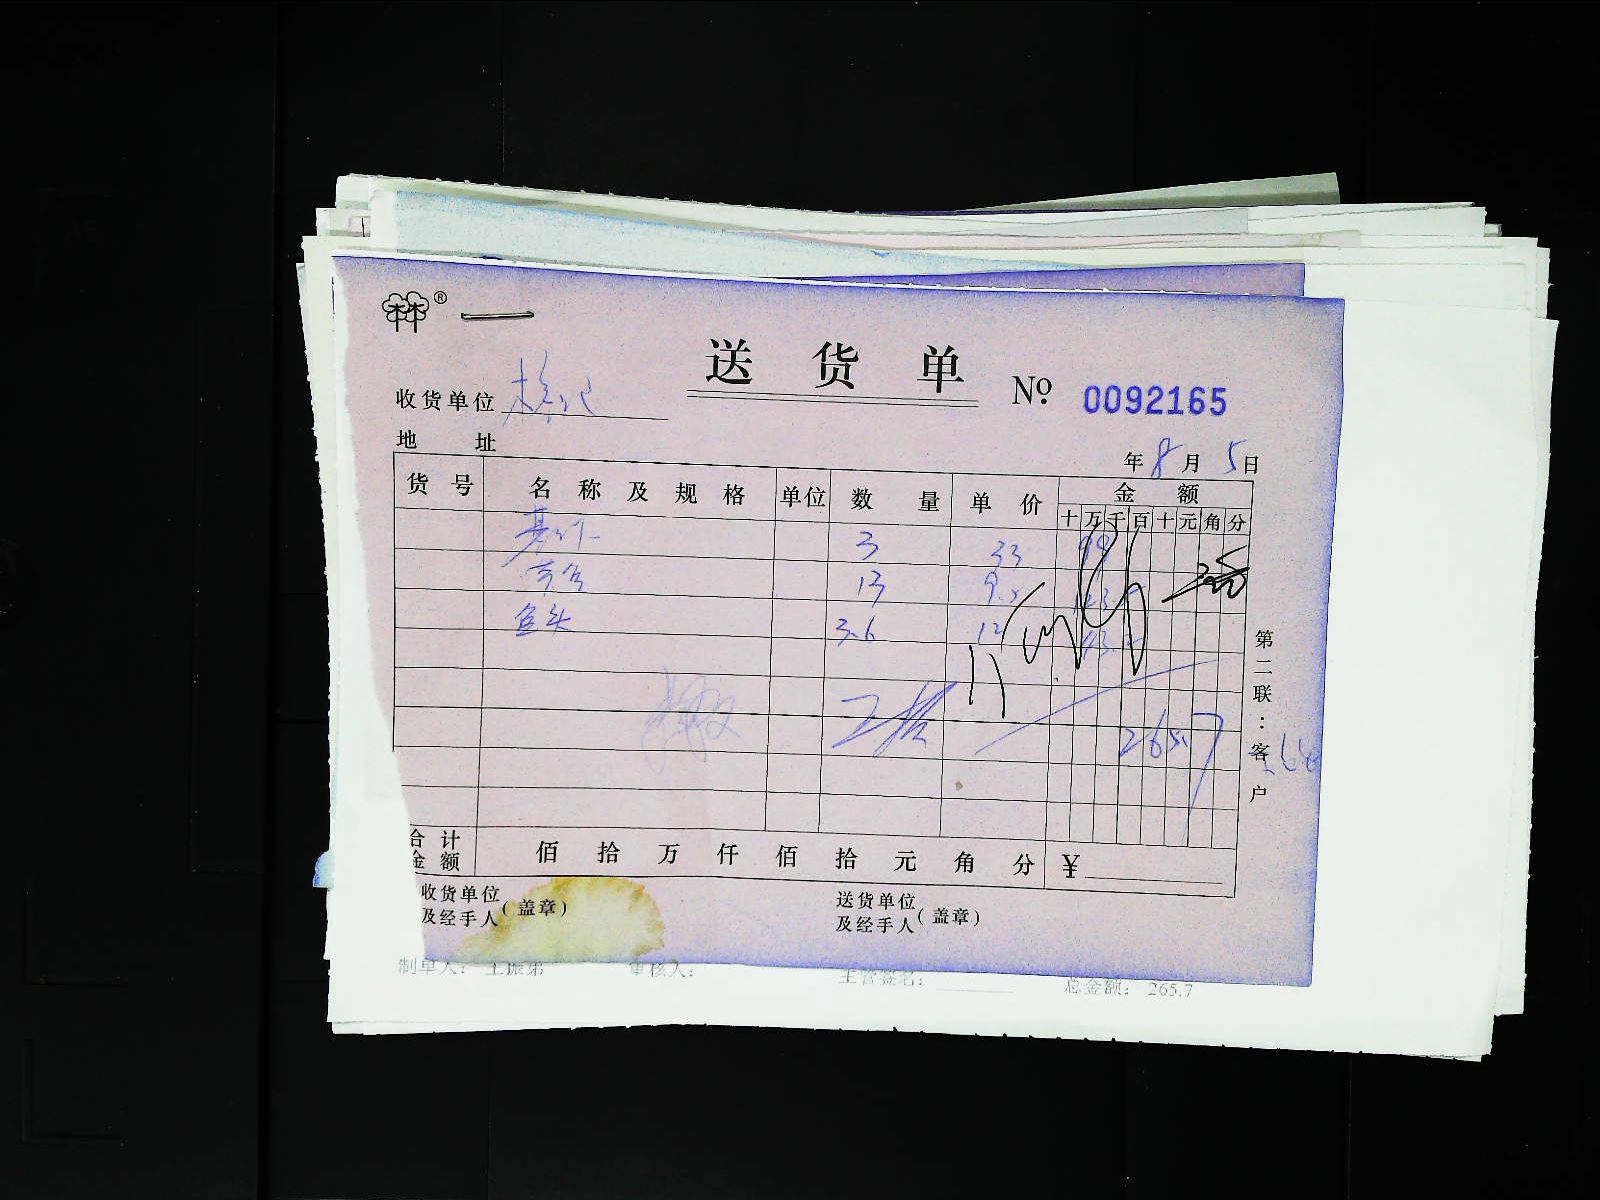 ®
送 货 单 Nº 0092165
收货单位
地 址
年 8 月 5 日
货 号 名 称 及 规 格 单位 数 量 单 价 金 额
十 万 千 百 十 元 角 分
3 33 99
13 9.5 123.5
鱼头 3.6 12 43.2
265.7
第二联：客户
合 计 金 额 佰 拾 万 仟 佰 拾 元 角 分 ¥
收货单位 及经手人 (盖章) 送货单位 及经手人 (盖章)
制单人： 王振第 审核人： 主管签名： 总金额： 265.7